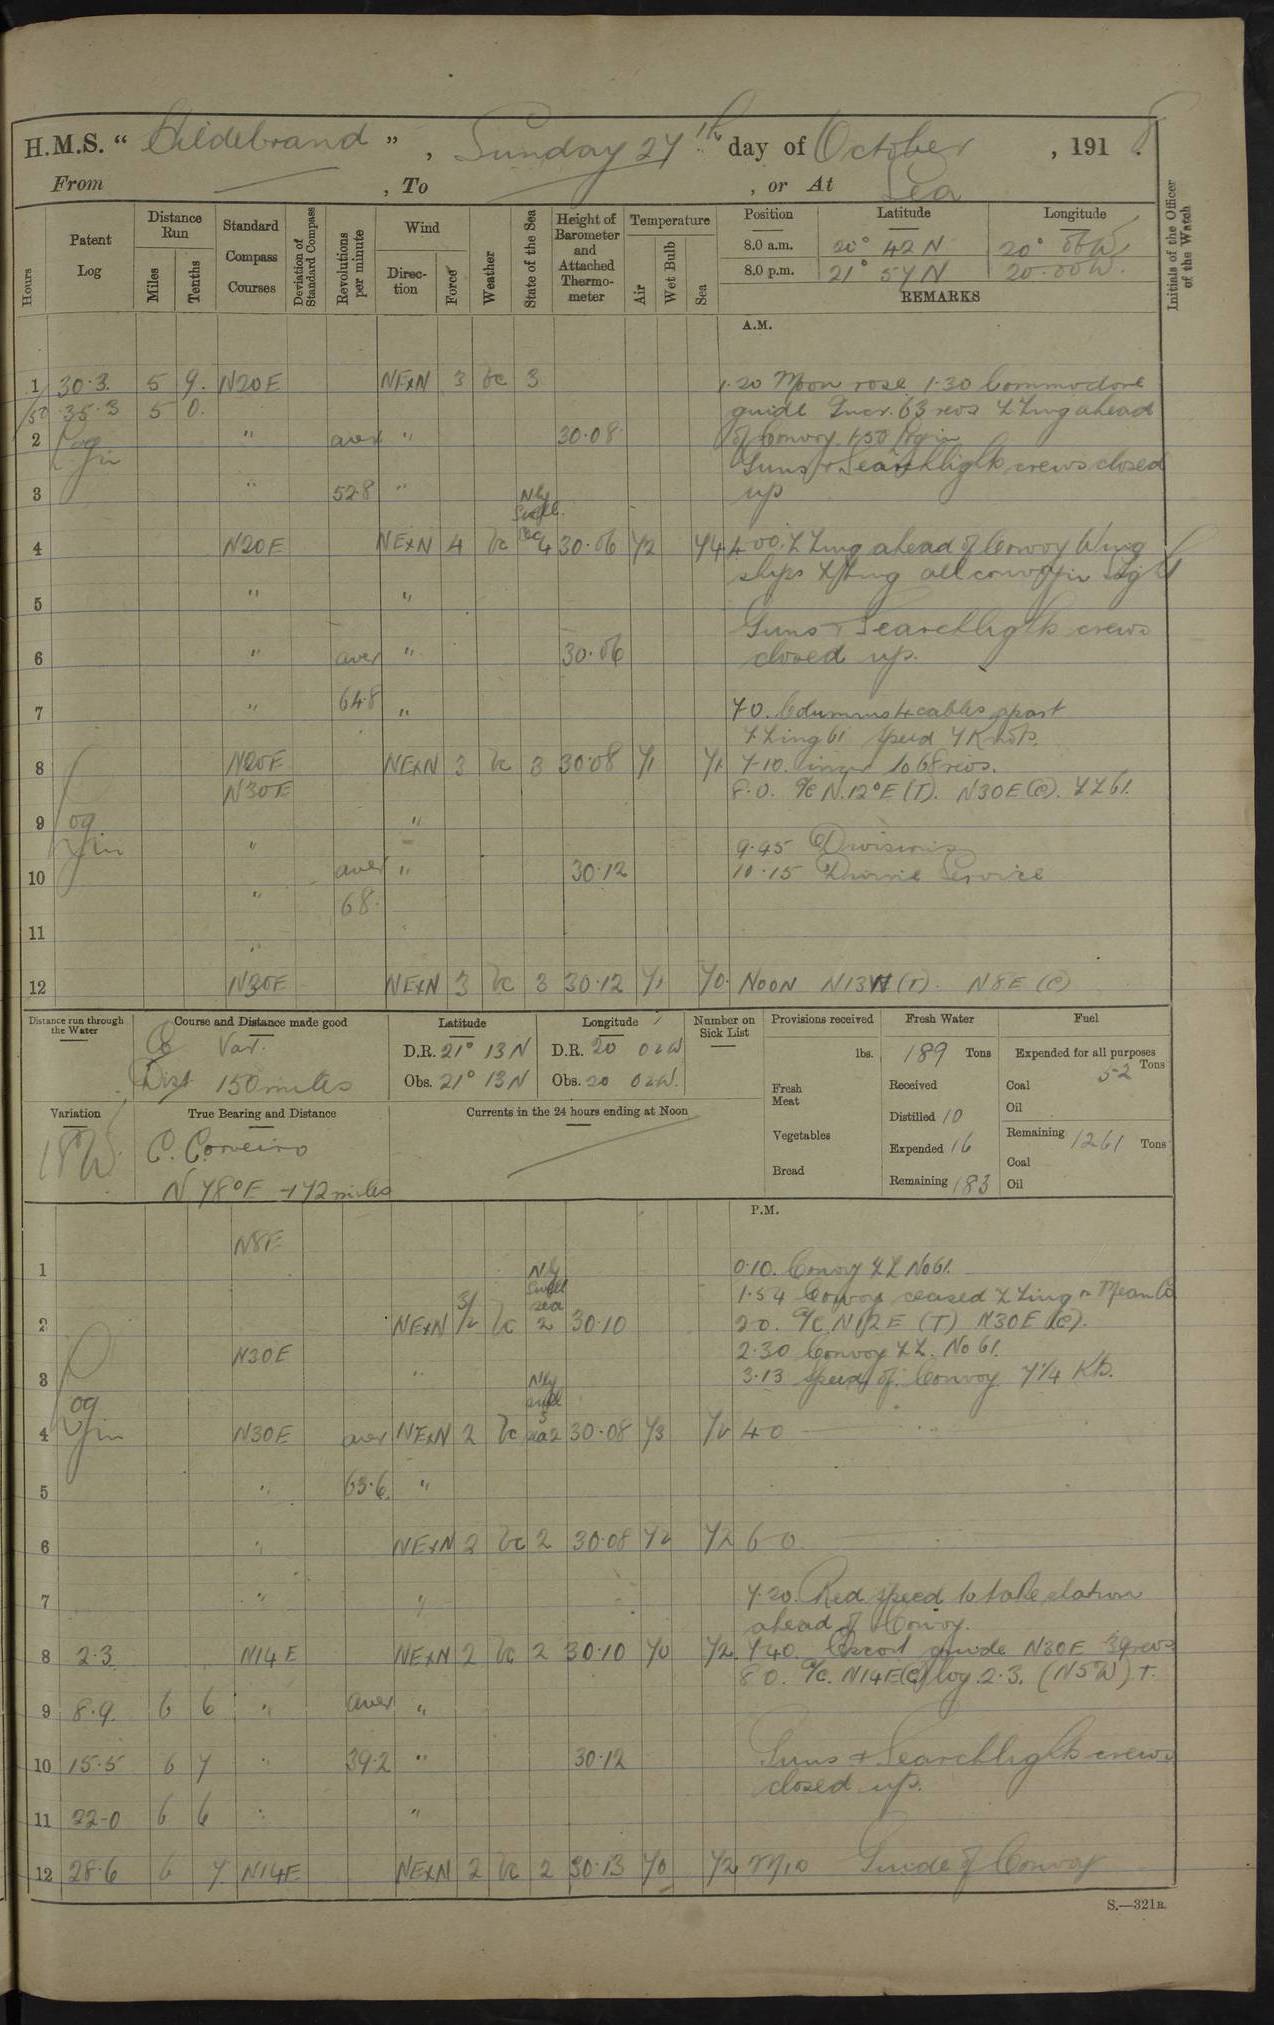 H.M.S. "Hildebrand", Sunday 27th day of October, 1918.
From — , To — , or At Sea
Hours
Patent Log
Distance Run
Miles
Tenths
Standard Compass Courses
Deviation of Standard Compass
Revolutions per minute
Wind
Direction
Force
Weather
State of the Sea
Height of Barometer and Attached Thermometer
Temperature
Air
Wet Bulb
Sea
Position
Latitude
Longitude
8.0 a.m. 20° 42 N 20° 06 W
8.0 p.m. 21° 57 N 20.00 W.
REMARKS
Initials of the Officer of the Watch
A.M.
1 30.3 5 9. N20E NExN 3 bc 3 1.20 Moon rose 1.30 Commodore
/50 35.3 5 0. guide Incr. 63 revs ZZing ahead
2 Log in " aver " 30.08 of Convoy. 1.50 log in
Guns & Searchlight crews closed
3 " 52.8 " up
Nly Swell
4 N20E NExN 4 bc Sea 4 30.06 72 74 4.00. ZZing ahead of Convoy Wing
ships ZZing all convoy in Sight
5 " "
Guns & Searchlight crews
6 " aver " 30.06 closed up.
7 " 64.8 " 7.0. Columns 4 cables apart
ZZing 61 speed 7 Knots.
8 N20E NExN 3 bc 3 30.08 71 71 7.10. incr to 68 revs.
N30E 8.0. A/C N.12°E (T). N30E (C). ZZ 61.
9 Log in "
" 9.45 Divisions
10 aver " 30.12 10.15 Divine Service
" 68.
11
"
12 N30E NExN 3 bc 3 30.12 71 70. NOON N13W (T). N8E (C)
Distance run through the Water
Course and Distance made good
Co Var.
Dist 150 miles
Latitude
D.R. 21° 13 N
Obs. 21° 13 N
Longitude
D.R. 20 02 W
Obs. 20 02 W.
Number on Sick List
Provisions received
lbs.
Fresh Meat
Vegetables
Bread
Fresh Water
189 Tons
Received
Distilled 10
Expended 16
Remaining 183
Fuel
Expended for all purposes
52 Tons
Coal
Oil
Remaining 1261 Tons
Coal
Oil
Variation
18°W
True Bearing and Distance
C. Corveiro
N 78°E 172 miles
Currents in the 24 hours ending at Noon
P.M.
N8E
1 Nly Swell sea 0.10. Convoy ZZ No 61.
1.54 Convoy ceased ZZing Mean Co
2 NExN 3/2 bc 2 30.10 2.0. A/C N12E (T) N30E (C).
N30E 2.30 Convoy ZZ. No 61.
3 " Nly swell 3.13 speed of Convoy 7 1/4 Kts.
4 Log in N30E aver NExN 2 bc sea 2 30.08 73 72 4.0
5 " 63.6 "
6 " NExN 2 bc 2 30.08 72 72 6.0
7 " " 7.20. Red speed to take station
ahead of Convoy.
8 2.3 N14E NExN 2 bc 2 30.10 70 72 7.40. Escort guide N30E 39 revs
8.0. A/C. N14E(C) log 2.3. (N5W) T.
9 8.9 6 6 " aver "
10 15.5 6 7 " 39.2 " 30.12 Guns & Searchlight crews
closed up.
11 22.0 6 6 " "
12 28.6 6 7 N14E NExN 2 bc 2 30.13 70 72 Guide of Convoy
S.—321B.